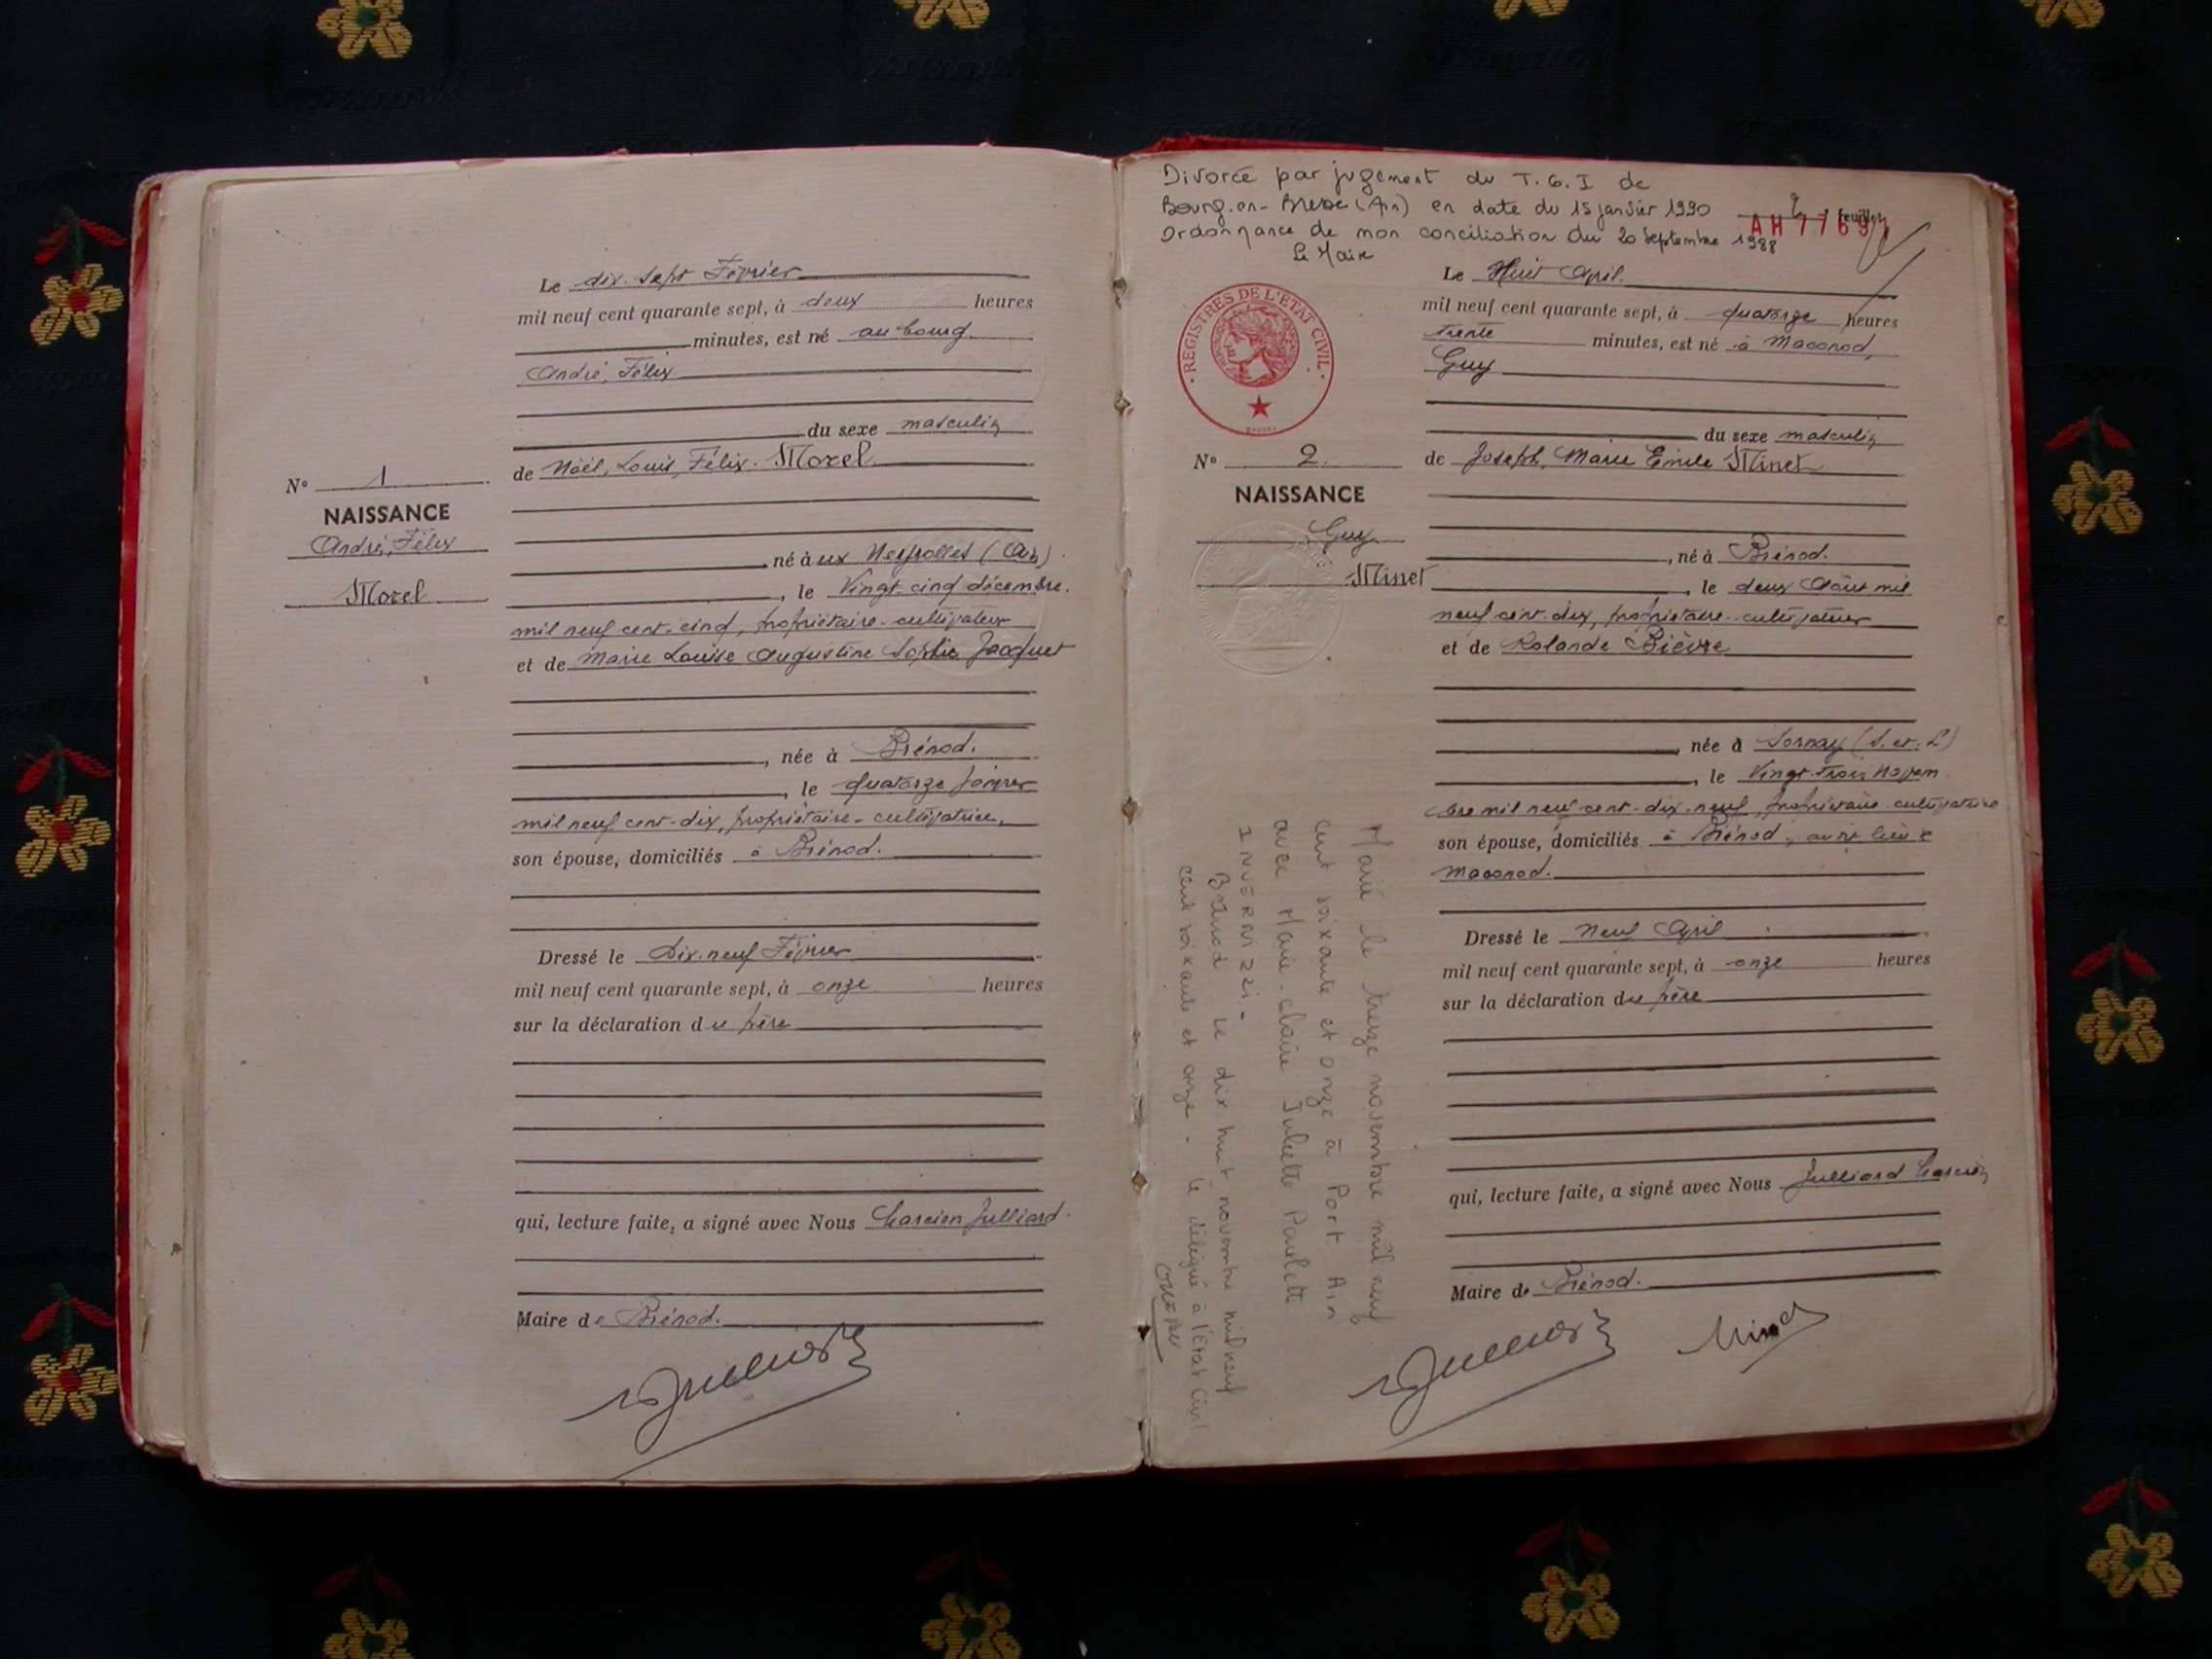 Le dix-sept Février
mil neuf cent quarante sept, à deux heures
minutes, est né au bourg
André, Félix
du sexe masculin
de Noël, Louis, Félix. Morel
N° 1
NAISSANCE
André, Félix
Morel
, né à ux Neyrolles (Ain)
, le Vingt-cinq décembre.
mil neuf cent-cinq, propriétaire-cultivateur
et de Marie Louise Augustine Sophie Jacquet
, née à Brénod.
, le quatorze janvier
mil neuf cent-dix, propriétaire-cultivatrice,
son épouse, domiciliés à Brénod.
Dressé le Dix-neuf Février
mil neuf cent quarante sept, à onze heures
sur la déclaration du père
qui, lecture faite, a signé avec Nous Julliard
Maire de Brénod.
Divorcé par jugement du T.G.I de
Bourg-en-Bresse (Ain) en date du 15 janvier 1990
Ordonnance de non conciliation du 20 Septembre 1988
Le Maire
2 feuillet
AH 7769
REGISTRES DE L'ETAT CIVIL
Le Huit Avril.
mil neuf cent quarante sept, à quatorze heures
trente minutes, est né à Maconod,
Guy
du sexe masculin
N° 2.
de Joseph, Marie Emile Minet
NAISSANCE
Guy
Minet
, né à Brénod.
, le deux Août mil
neuf cent-dix, propriétaire-cultivateur
et de Rolande Bièvre
, née à Sornay (S.et.L)
, le Vingt-Trois Novem
bre mil neuf-cent-dix-neuf, propriétaire-cultivatrice
son épouse, domiciliés à Brénod, au
Maconod.
Dressé le Neuf Avril
mil neuf cent quarante sept, à onze heures
sur la déclaration du père
qui, lecture faite, a signé avec Nous Julliard
Maire de Brénod.
Minet
Marié le treize novembre mil neuf
cent soixante et onze à Port Ain
avec Marie-Claire Juliette Paulette
INVERNIZZI-
Brénod le dix huit novembre mil neuf
cent soixante et onze - le délégué à l'Etat Civil